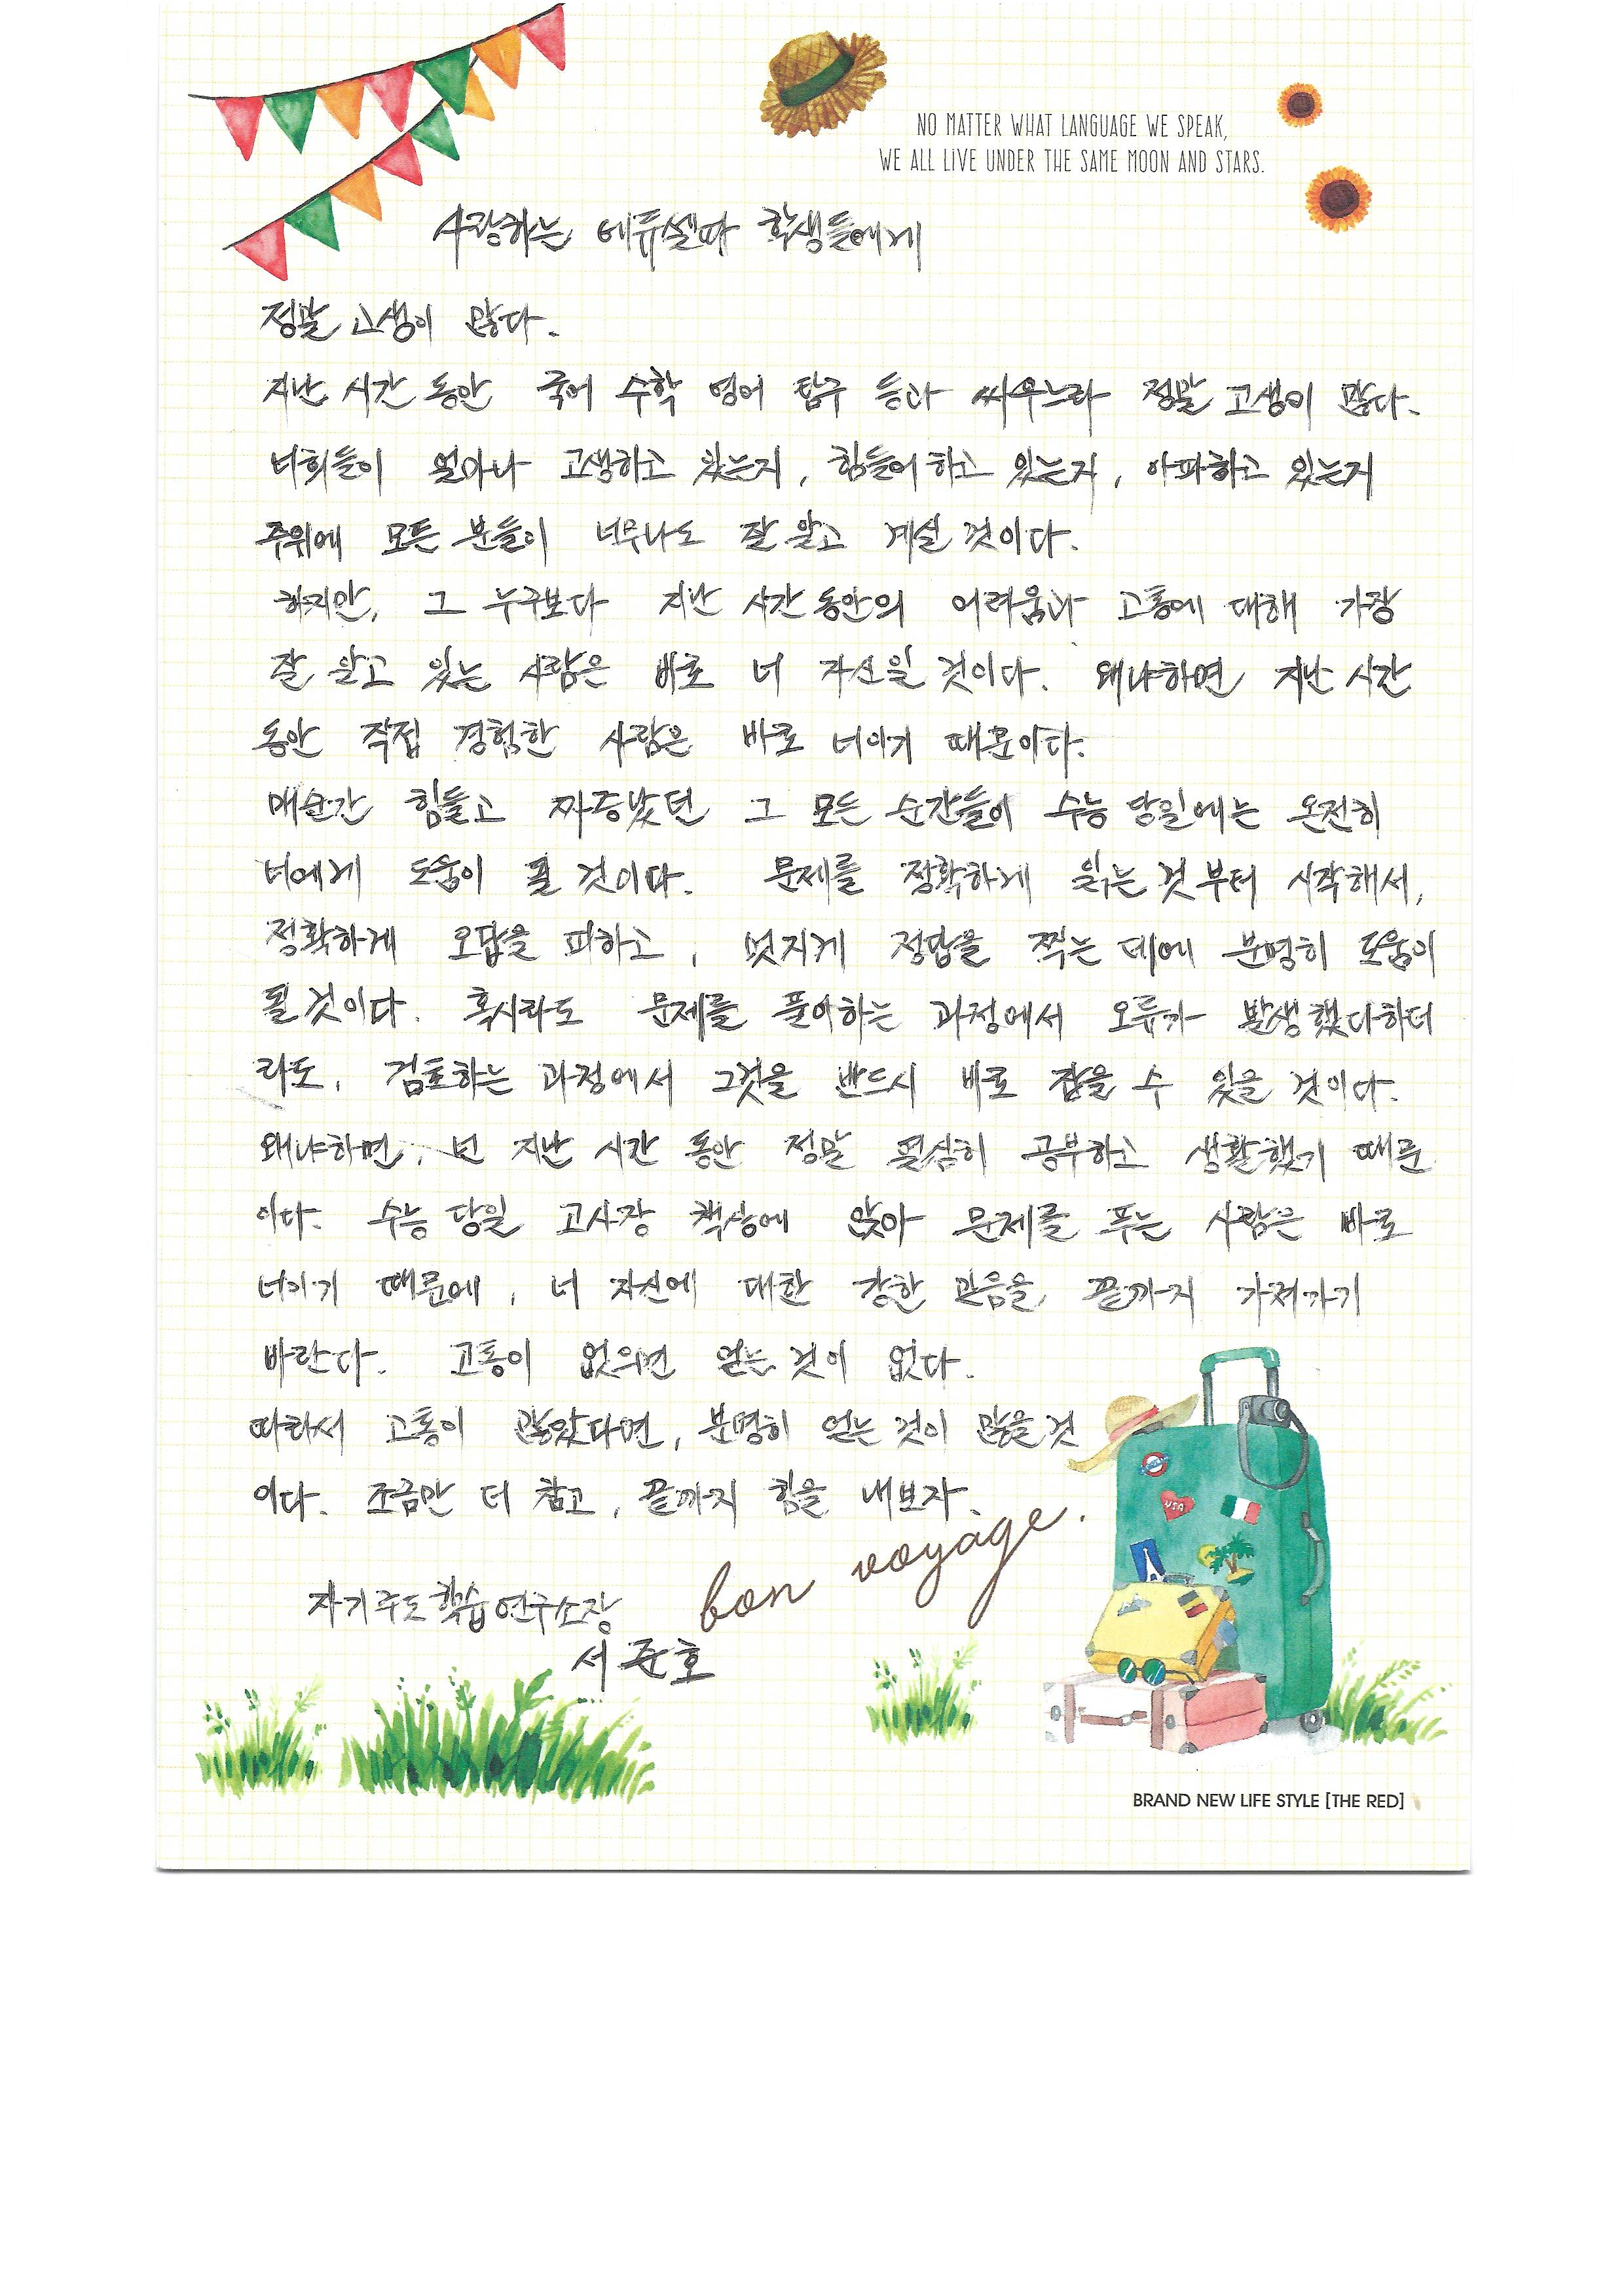 NO MATTER WHAT LANGUAGE WE SPEAK,
WE ALL LIVE UNDER THE SAME MOON AND STARS.
사랑하는 에듀셀파 학생들에게
정말 고생이 많다.
지난 시간 동안 국어 수학 영어 탐구 등과 싸우느라 정말 고생이 많다.
너희들이 얼마나 고생하고 있는지, 힘들어하고 있는지, 아파하고 있는지
주위에 모든 분들이 너무나도 잘 알고 계실 것이다.
하지만, 그 누구보다 지난 시간 동안의 어려움과 고통에 대해 가장
잘 알고 있는 사람은 바로 너 자신일 것이다. 왜냐하면 지난 시간
동안 직접 경험한 사람은 바로 너이기 때문이다.
매순간 힘들고 짜증났던 그 모든 순간들이 수능 당일에는 온전히
너에게 도움이 될 것이다. 문제를 정확하게 읽는 것부터 시작해서,
정확하게 오답을 피하고, 멋지게 정답을 찍는 데에 분명히 도움이
될 것이다. 혹시라도 문제를 풀어하는 과정에서 오류가 발생했다하더
라도, 검토하는 과정에서 그것을 반드시 바로 잡을 수 있을 것이다.
왜냐하면, 넌 지난 시간 동안 정말 열심히 공부하고 생활했기 때문
이다. 수능 당일 고사장 책상에 앉아 문제를 푸는 사람은 바로
너이기 때문에, 너 자신에 대한 강한 믿음을 끝까지 가져가기
바란다. 고통이 없으면 얻는 것이 없다.
따라서 고통이 많았다면, 분명히 얻는 것이 많을 것
이다. 조금만 더 참고, 끝까지 힘을 내보자.
bon voyage.
자기주도학습연구소장
서준호
USA
BRAND NEW LIFE STYLE [THE RED]